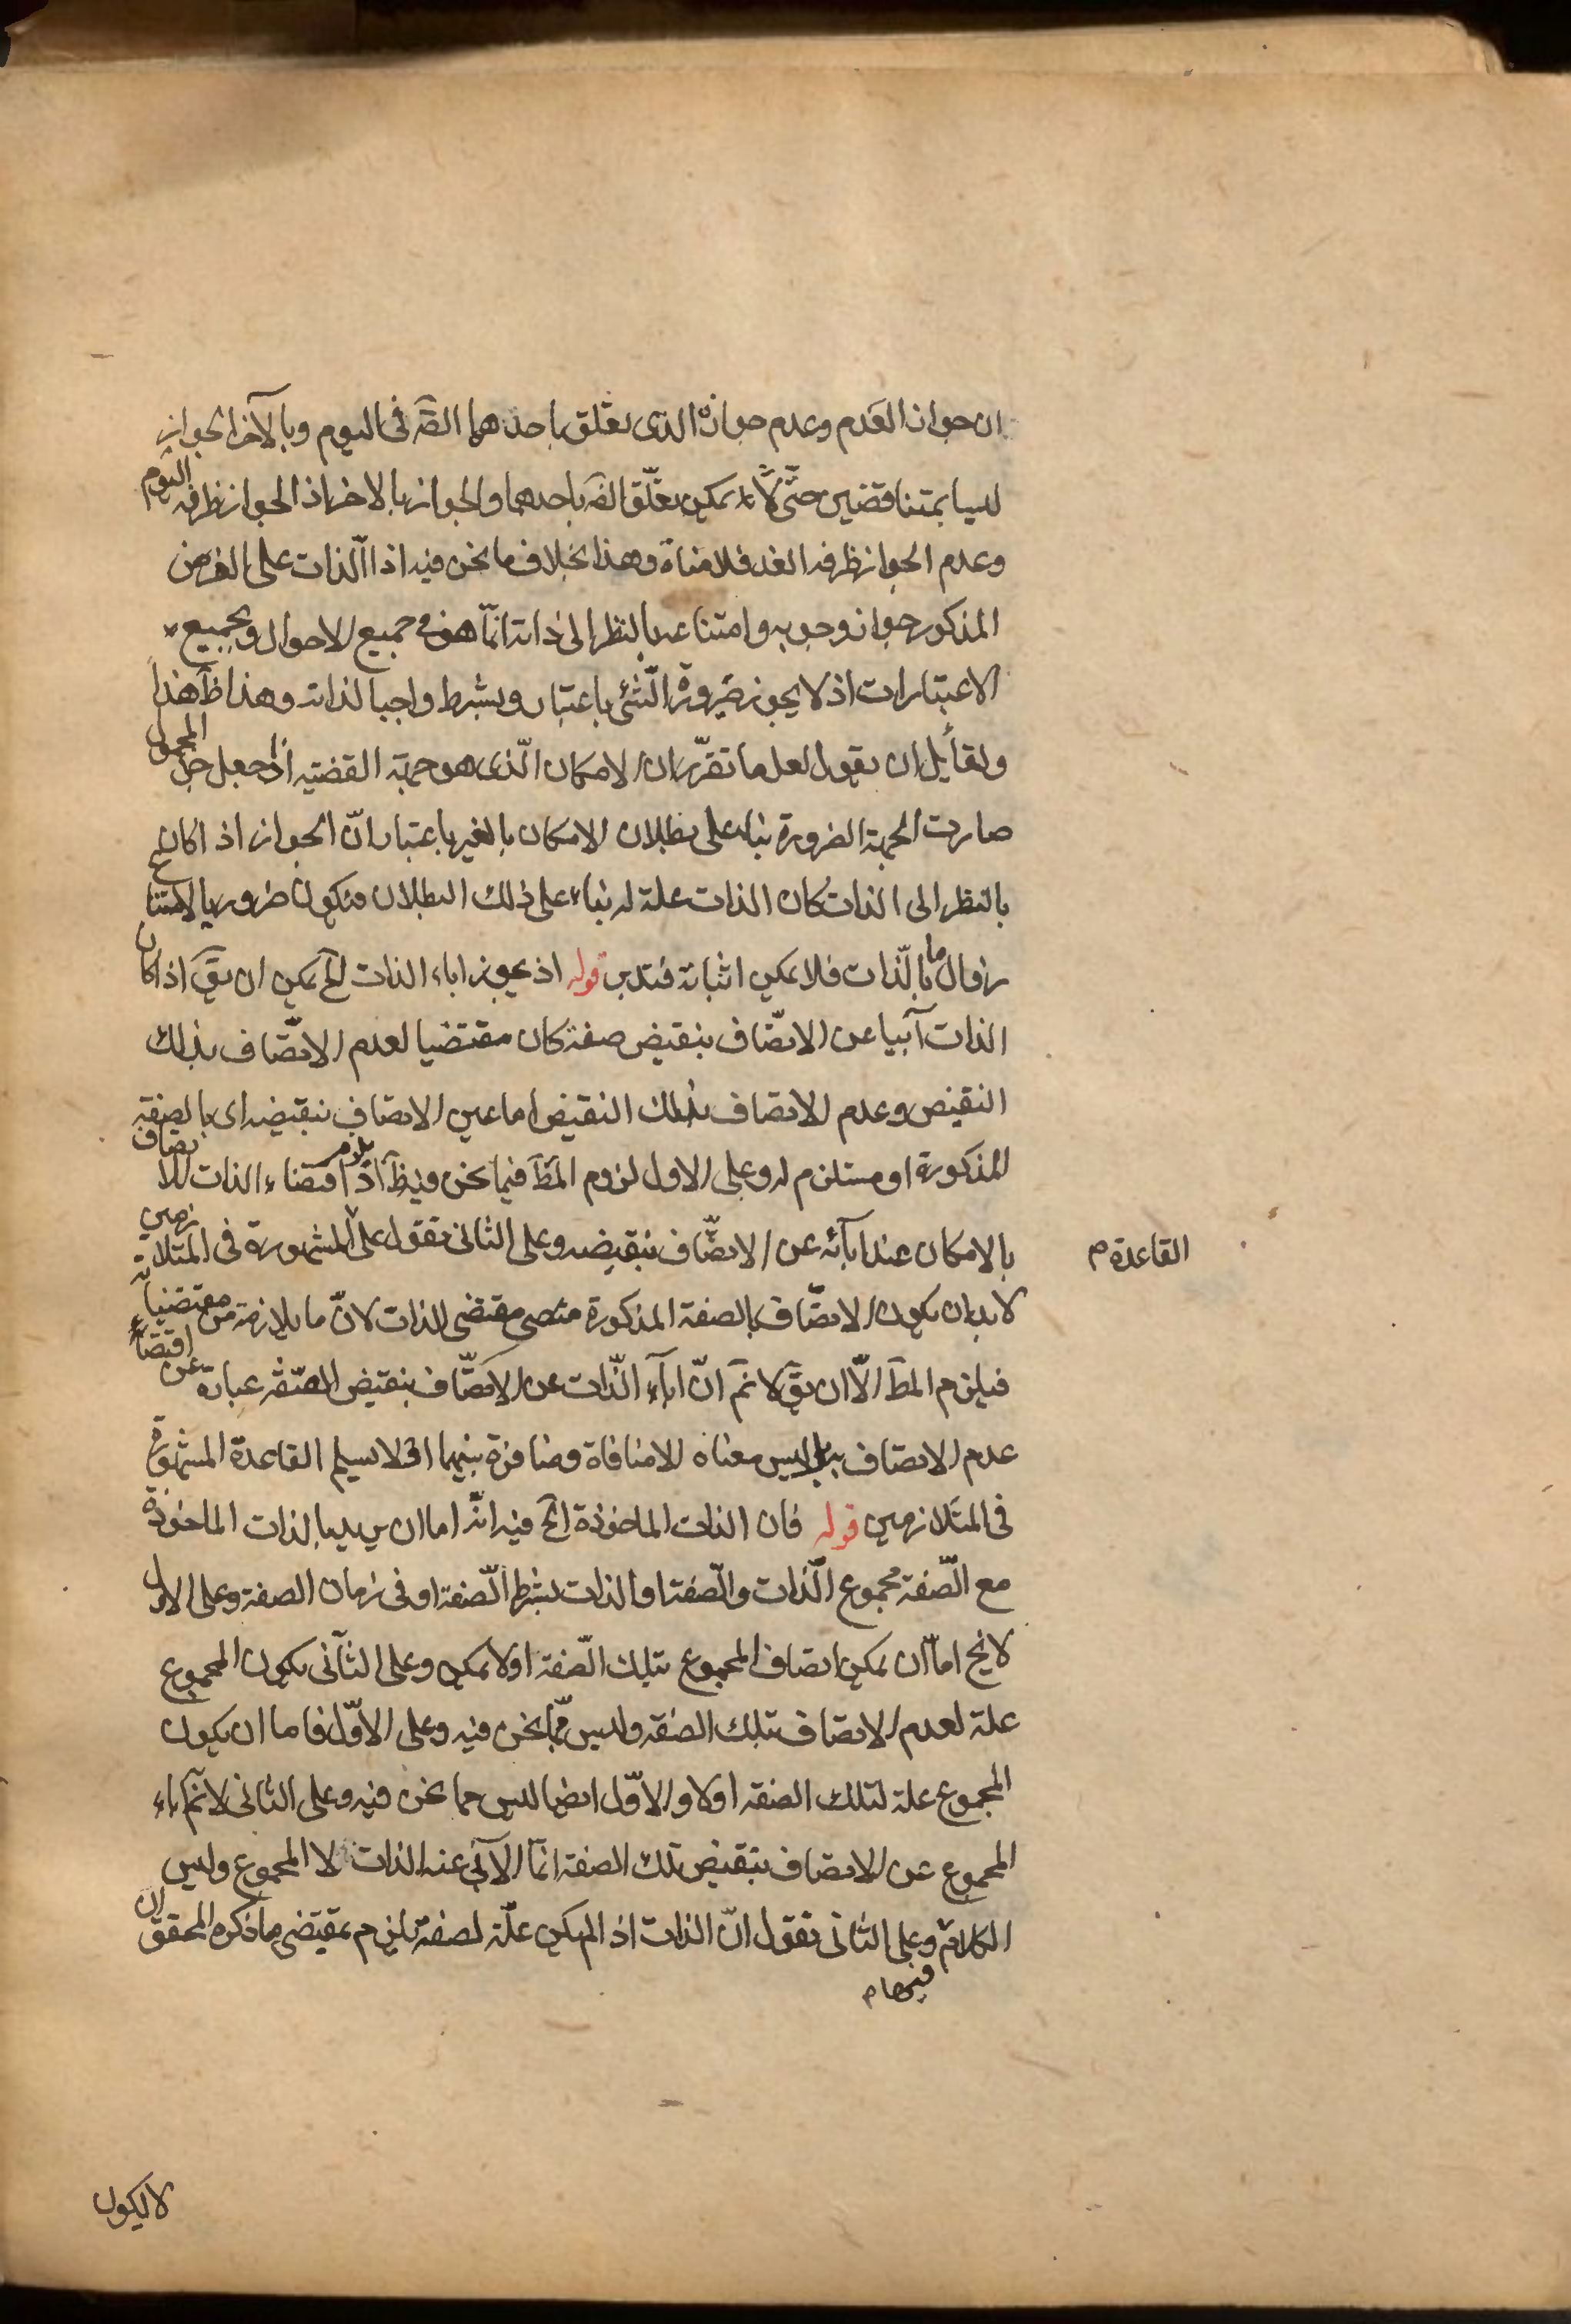 ان جواز العدم وعدم جوازه الذى تعلق باحدهما الضَرَ فى اليوم وبالآخر الجواز
ليسا بمتناقضين حتّى لا يمكن تعلّق الضَر باحدهما والجواز بالاخر اذ الجواز ظرفه اليوم
وعدم الجواز ظرفه الغد فلا منافاة وهذا بخلاف ما نحن فيه اذ الّذات على الفرض
المذكور جواز وجوبه وامتناعه بالنظر الى ذاته انّما هو فى جميع الاحوال وبجميع
الاعتبارات اذ لا يجوز ضرورة الشئ باعتبار وبشرط واجبا لذاته وهذا ظَ هذا
ولقائل ان يقول لعل ما تقرّر ان الامكان الّذى هو جهة القضيه اذا جعل جزء المحمول
صارت الجهة الضرورة بناء على بطلان الامكان بالغير باعتبار انّ الجواز اذا كان
بالنظر الى الذات كان الذات علة له بناء على ذلك البطلان فيكون ضروريا لامتناع
زوال ما بالّذات فلا يمكن اثباته فتدبر قوله اذ يجوز اباء الذات الخ يمكن ان يقَ اذا كان
الذات آبيا عن الاتّصاف بنقيض صفة كان مقتضيا لعدم الاتّصاف بذلك
النقيض وعدم الاتصاف بذلك النقيض اما عين الاتصاف بنقيضه اى بالصفة
المذكورة او مستلزم له وعلى الاول لزوم المطَ فيما نحن فيه ظَ اذ يلزم اقتضاء الذات للاتصاف
بالامكان عند ابآئه عن الاتصّاف بنقيضه وعلى الثانى نقول على المشهورة فى المتلازمين
القاعدة م
لا بد ان يكون الاتصّاف بالصفة المذكورة مقتضى الذات لانّ ما يلازمه من مقتضياته
فيلزم المطَ الّا ان يقَ لا نمَ انّ اباء الذّات عن الاتّصاف بنقيض الصفة عبارة عن اقتضاء
عدم الاتصاف به بل ليس معناه الا منافاة ومنافرة بينهما او لا نسلم القاعدة المشهورة
فى المتلازمين قوله فان الذات الماخوذة الخ فيه انّه اما ان يريد بالذات الماخوذة
مع الصّفة مجموع الّذات والصّفة او الذات بشرط الصّفة او فى زمان الصفة وعلى الاول
لا يخ امّا ان يمكن اتصاف المجموع بتلك الصّفة او لا يمكن وعلى الثّانى يكون المجموع
علة لعدم الاتصاف بتلك الصفه وليس ممّا نحن فيه وعلى الاوّل فاما ان يكون
المجموع علة لتلك الصفه او لا والاوّل ايضا ليس مما نحن فيه وعلى الثانى لا نمَ اباء
المجموع عن الاتصاف بنقيض تلك الصفة انما الآبى عنه الذات لا المجموع وليس
الكلام وعلى الثانى نقول انّ الذات اذا لم يكن علّة لصفة يلزم بمقتضى ما ذكره المحقق ان
فيها م
لا يكون